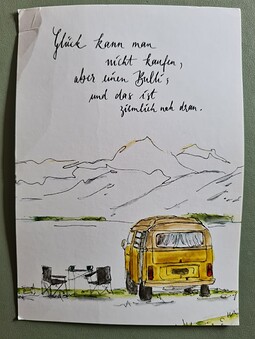 Glück kann man
nicht kaufen,
aber einen Bulli,
und das ist
ziemlich nah dran.